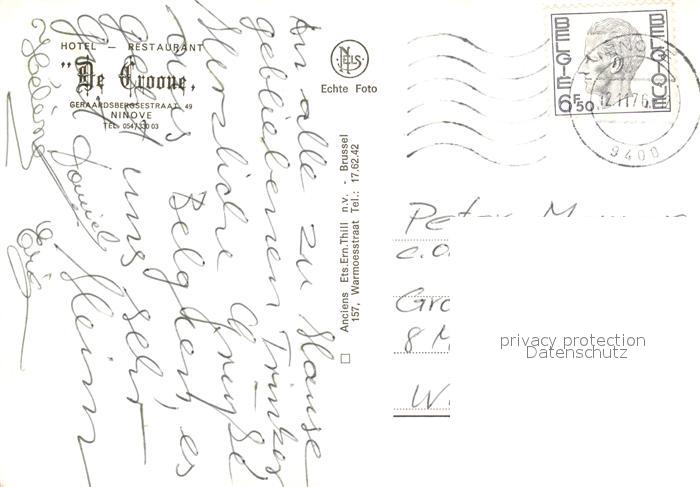 HOTEL — RESTAURANT
"De Croone"
GERAARDSBERGSESTRAAT 49
NINOVE
TEL. 054/330 03
NELS
Echte Foto
Anciens Ets.Ern.Thill n.v. - Brussel
157, Warmoesstraat Tel.: 17.62.42
BELGIE BELGIQUE
6F50
12.11.76
9400
An alle zu Hause
gebliebenen Trinker
Herzliche Grüße
aus Belgien, es
gefällt uns sehr
gut Heinz
Daniel
Erik
Peter
c.o
Gro
8 M
W
privacy protection
Datenschutz